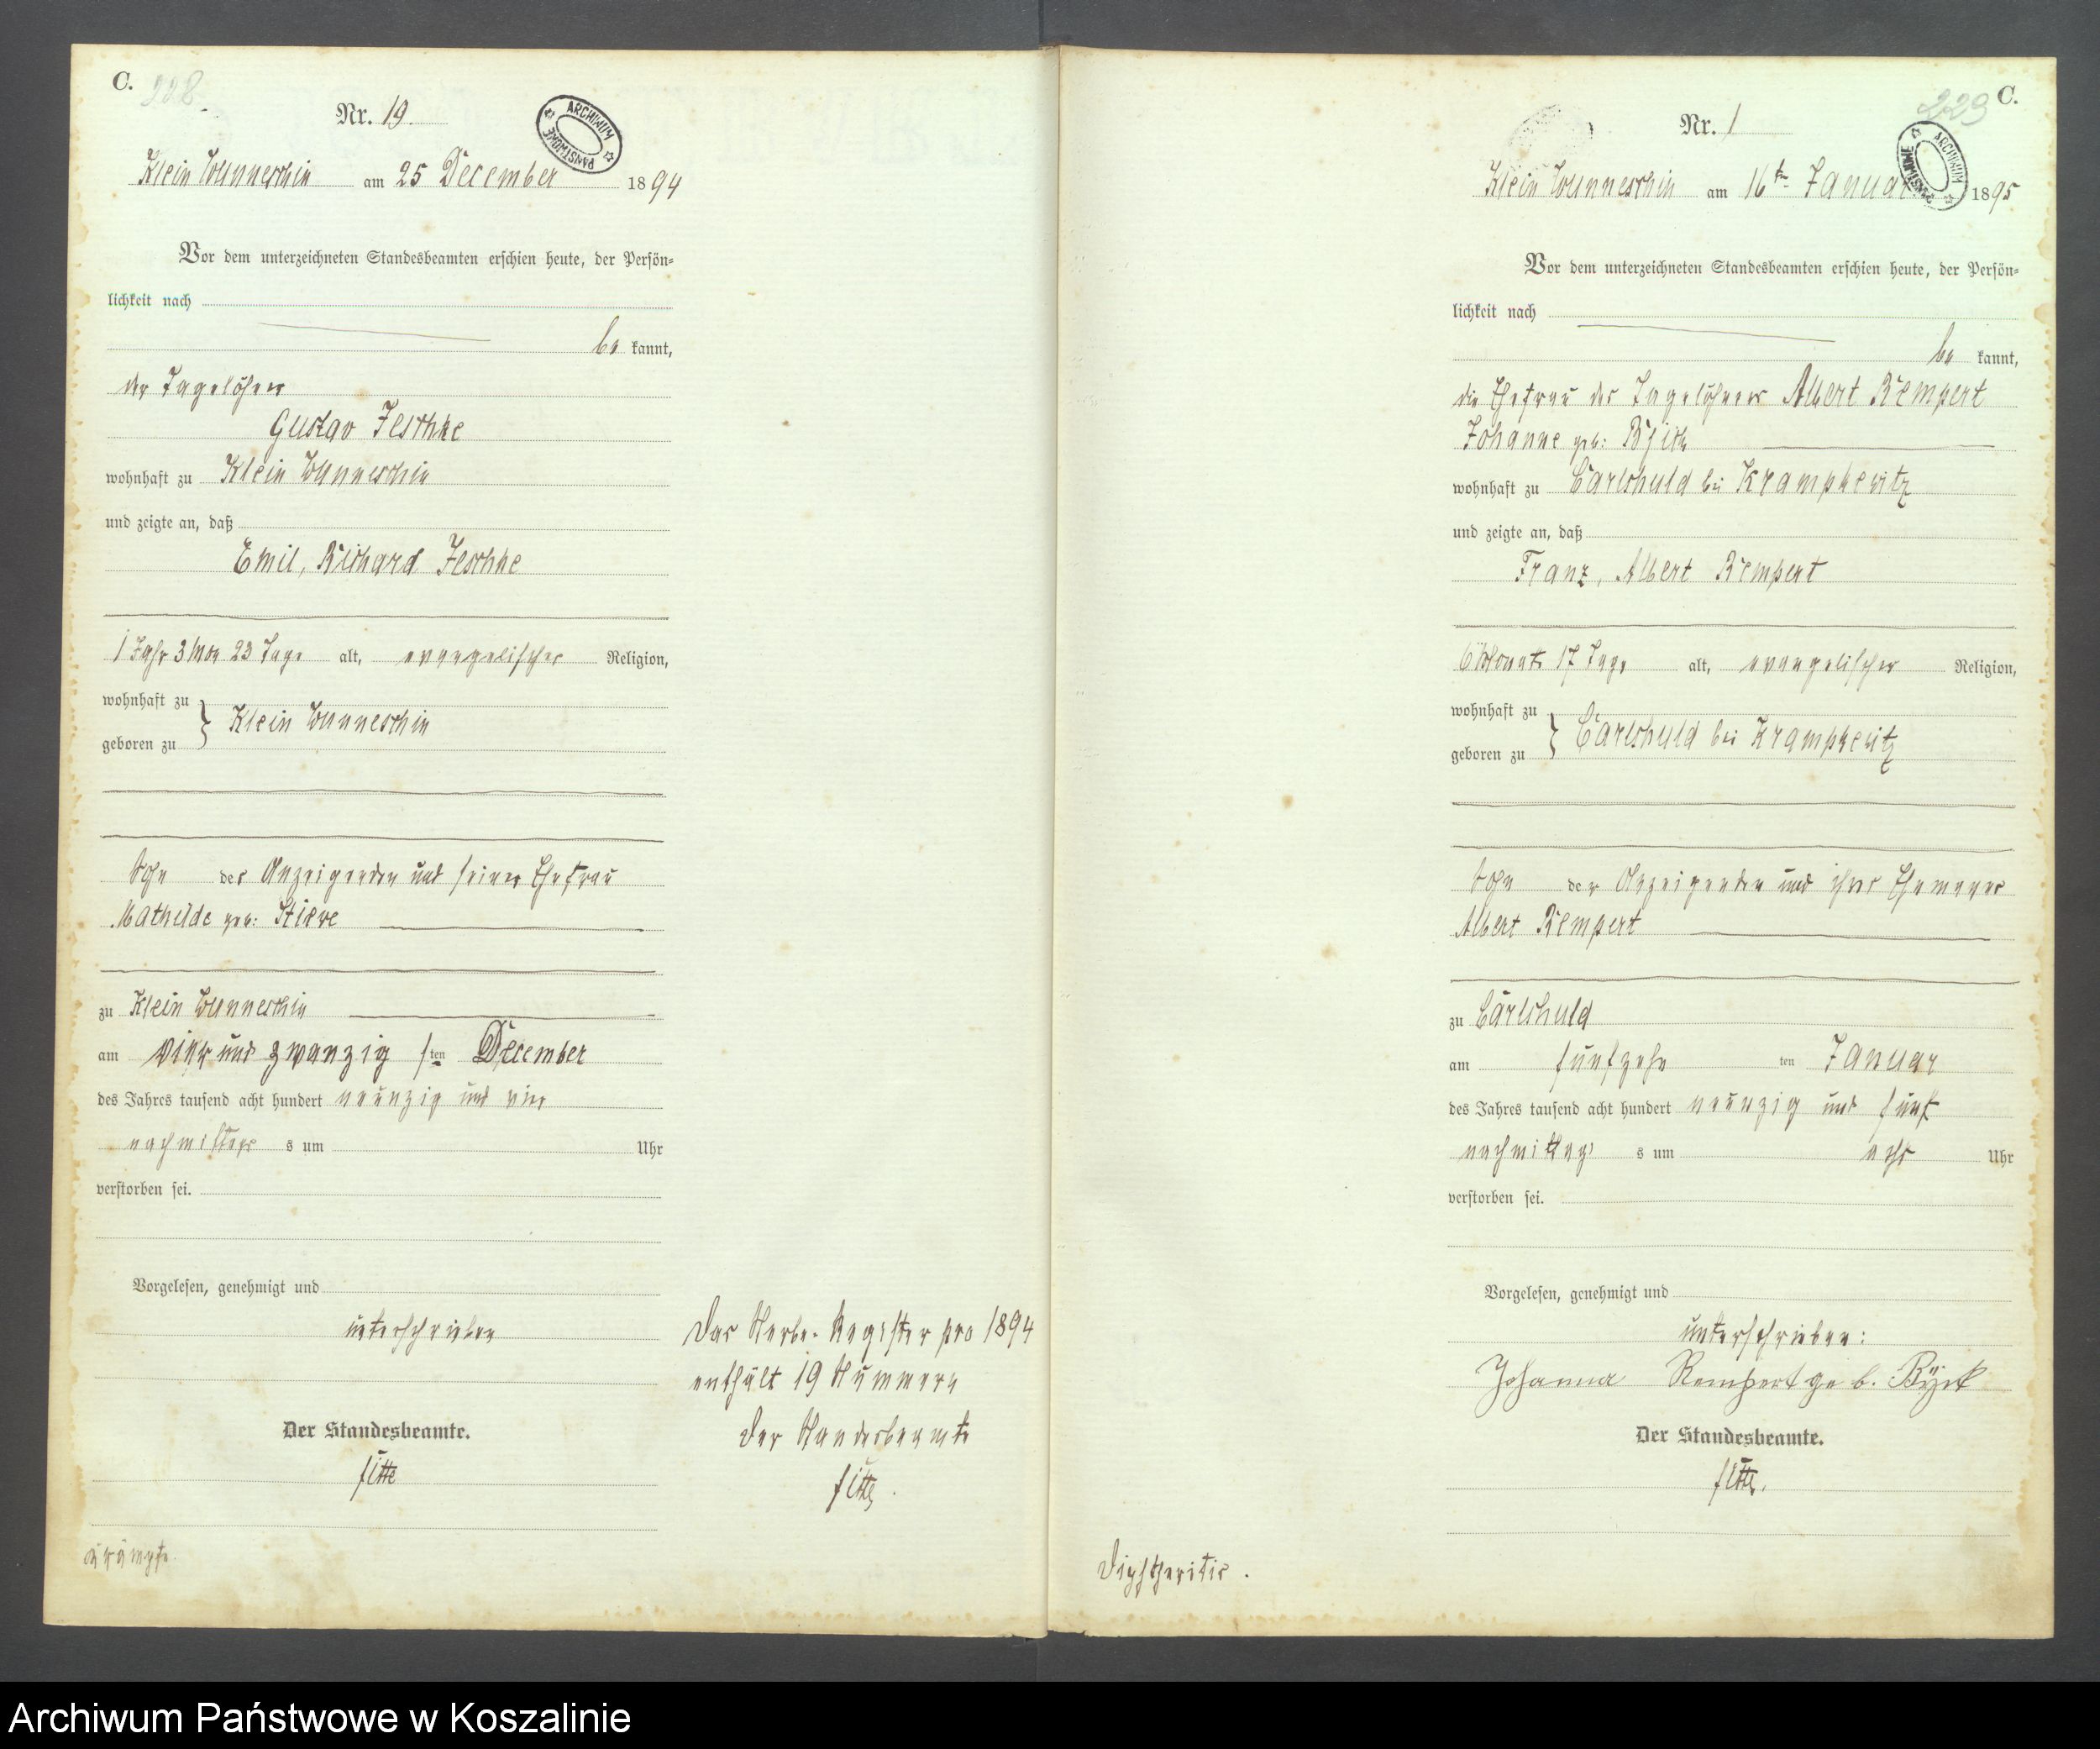 C.
228
Nr. 19.
ARCHIWUM PAŃSTWOWE
Klein Wunneschin am 25 December 1894
Vor dem unterzeichneten Standesbeamten erschien heute, der Persön-
lichkeit nach
be kannt,
der Tagelöhner
Gustav Jeschke
wohnhaft zu Klein Wunneschin
und zeigte an, daß
Emil, Richard Jeschke
1 Jahr 3 Mon 23 Tage alt, evangelischer Religion,
wohnhaft zu
Klein Wunneschin
geboren zu
Sohn des Anzeigenden und seiner Ehefrau
Mathilde geb: Stieve
zu Klein Wunneschin
am vier und zwanzig sten December
des Jahres tausend acht hundert neunzig und vier
nachmittags s um Uhr
verstorben sei.
Vorgelesen, genehmigt und
unterschrieben
Der Standesbeamte.
Krämpfe.
Das Sterbe-Register pro 1894
enthält 19 Nummern
Der Standesbeamte
C.
229
Nr. 1
ARCHIWUM PAŃSTWOWE
Klein Wunneschin am 16ten Januar 1895
Vor dem unterzeichneten Standesbeamten erschien heute, der Persön-
lichkeit nach
be kannt,
die Ehefrau des Tagelöhners Albert Rempert
Johanne geb:
wohnhaft zu Carlshuld bei Krampkewitz
und zeigte an, daß
Franz, Albert Rempert
6 Monate 17 Tage alt, evangelischer Religion,
wohnhaft zu
Carlshuld bei Krampkewitz
geboren zu
Sohn der Anzeigenden und ihres Ehemannes
Albert Rempert
zu Carlshuld
am fünfzehn ten Januar
des Jahres tausend acht hundert neunzig und fünf
nachmittags s um acht Uhr
verstorben sei.
Vorgelesen, genehmigt und
unterschrieben:
Johanna Rempert geb.
Der Standesbeamte.
Diphtheritis.
Archiwum Państwowe w Koszalinie